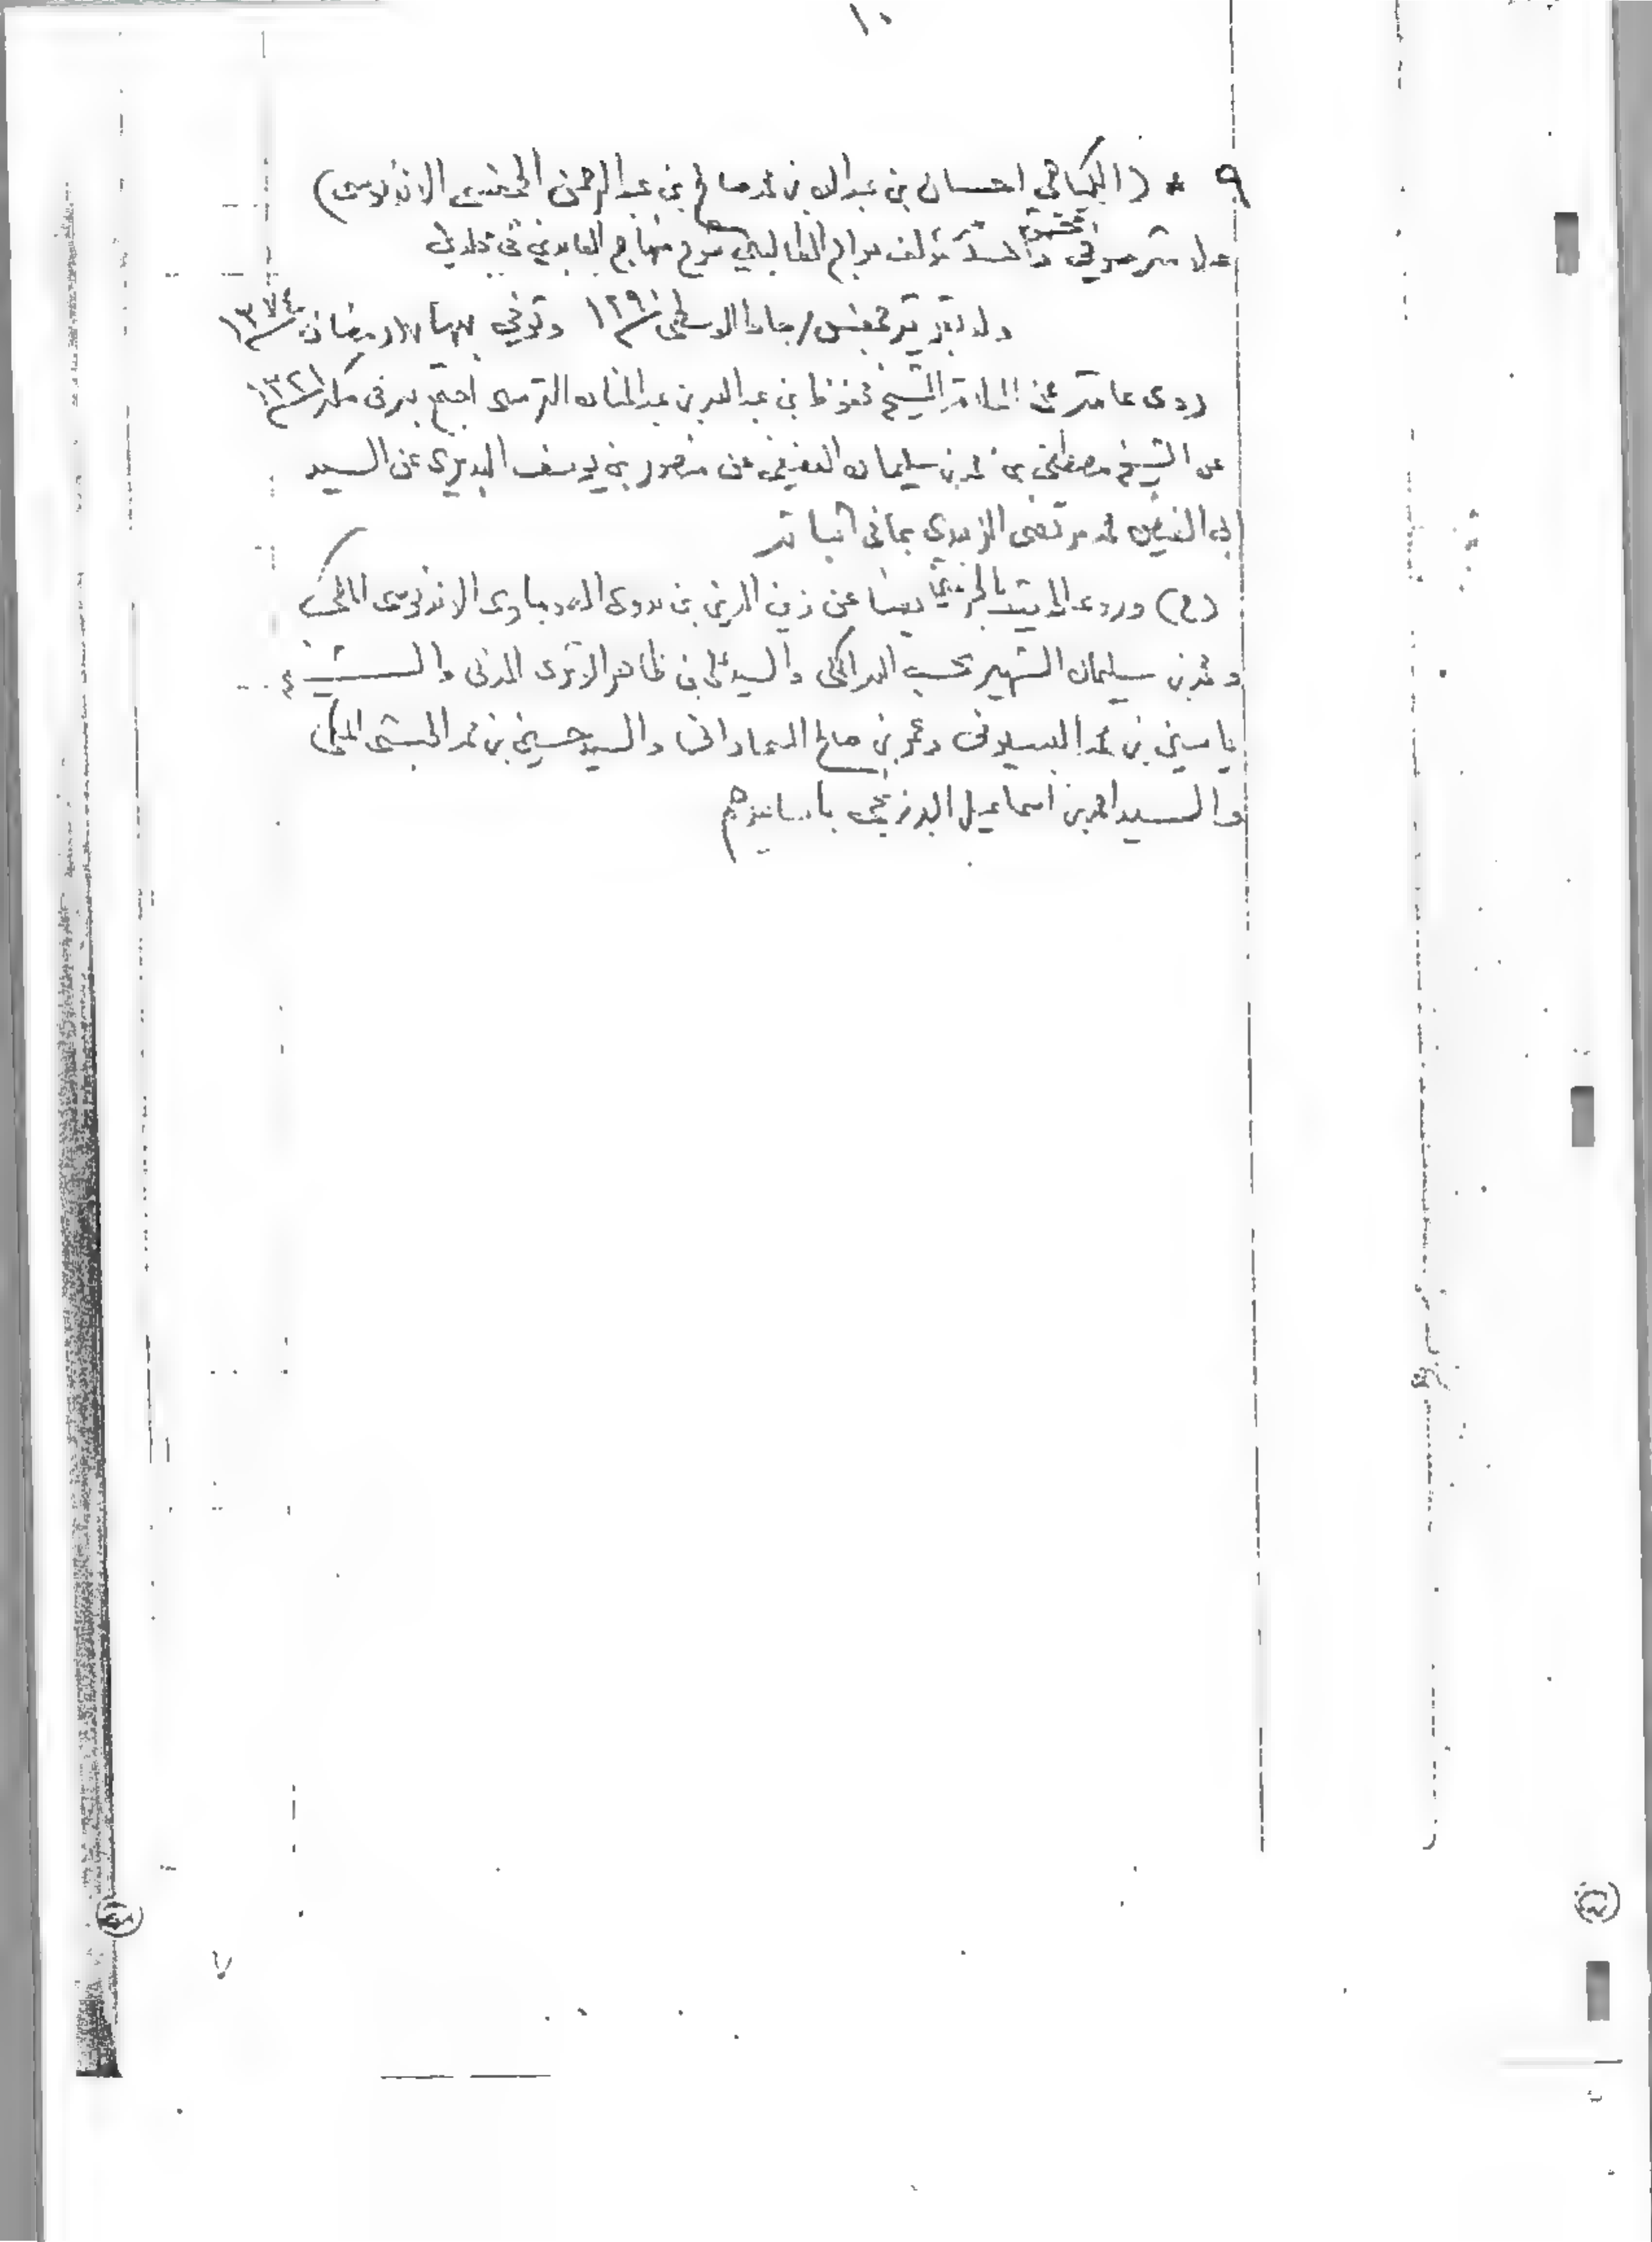 ١٠
٩ * (الكياهي احسان بن عبدالله بن محمد صالح بن عبدالرحمن الجمفسى الاندونوسى)
علامة صوفي محقق مؤلف سراج الطالبين شرح منهاج العابدين في مجلدين
ولد بقرية جمفس / جمادا الاولى ١٢٩٠ وتوفي بها رمضان
روى عامة عن العلامة الشيخ محفوظ بن عبدالله بن عبدالمنان الترمسى اجتمع به في مكة ١٣٢١
عن الشيخ مصطفى بن محمد بن سليمان العفيفى عن منصور بن يوسف البديرى عن السيد
ابى الفيض محمد مرتضى الزبيدى بما في اثباته
(ح) وروى ايضا عن زين الدين بن بدوى الاندونوسى المكى
ومحمد بن سليمان الشهير بحسب الله المكى والسيد على بن ظاهر الوترى المدنى والشيخ
ياسين بن محمد البسيونى وعمر بن صالح السمارانى والسيد حسين بن محمد الحبشى المكى
والسيد احمد بن اسماعيل البرزنجى باسانيدهم